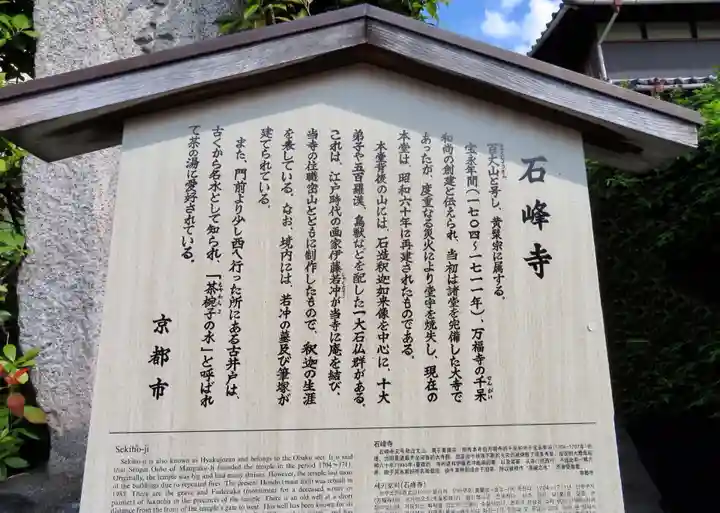 石峰寺
百丈山と号し、黄檗宗に属する。
宝永年間(一七〇四〜一七一一年)、万福寺の千呆
和尚の創建と伝えられ、当初は諸堂を完備した大寺で
あったが、度重なる災火により堂宇を焼失し、現在の
本堂は、昭和六十年に再建されたものである。
本堂背後の山には、石造釈迦如来像を中心に、十大
弟子や五百羅漢、鳥獣などを配した一大石仏群がある。
これは、江戸時代の画家伊藤若冲が当寺に庵を結び、
当寺の住職密山とともに制作したもので、釈迦の生涯
を表している。なお、境内には、若冲の墓及び筆塚が
建てられている。
また、門前より少し西へ行った所にある古井戸は、
古くから名水として知られ、「茶碗子の水」と呼ばれ
て茶の湯に愛好されている。
京都市
Sekiho-ji
Sekiho-ji is also known as Hyakujozan and belongs to the Obaku sect. It is said
that Sengai Osho of Manpuku-ji founded the temple in the period 1704~1711.
Originally, the temple was big and had many shrines. However, the temple lost most
of the buildings due to repeated fires. The present Hondo (main hall) was rebuilt in
1985. There are the grave and Fudezuka (monument for a deceased writer or
painter) of Jakuchu in the precincts of the temple. There is an old well at a short
distance from the front of the temple's gate to west. This well has been known for its
石峰寺